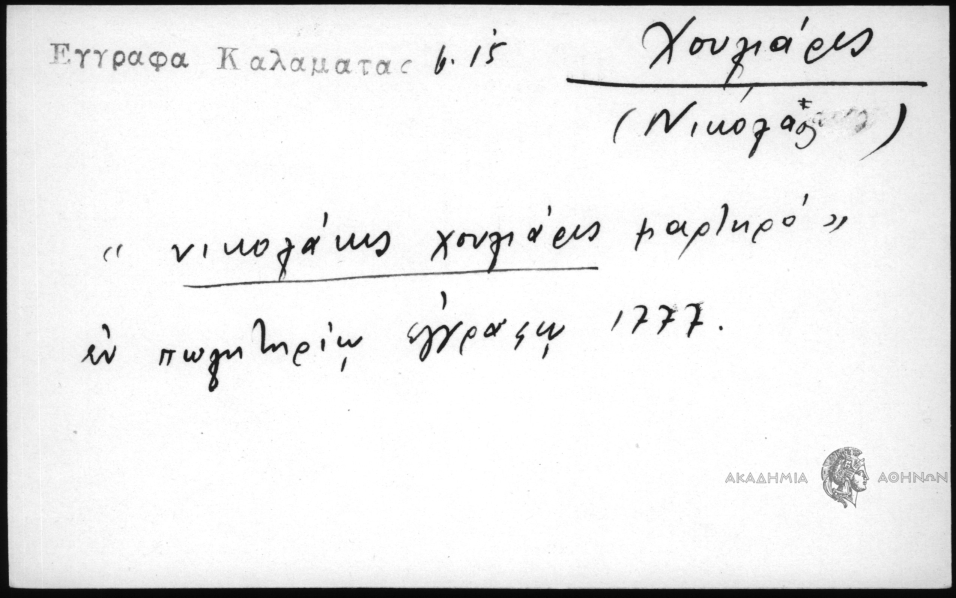 Εγγραφα Καλαματας 6.15
Χουλιάρης
(Νικόλαος)
« νικολάκης χουλιάρης μαρτηρό »
ἐν πωλητηρίῳ ἐγγράφῳ 1777.
ΑΚΑΔΗΜΙΑ ΑΘΗΝΩΝ